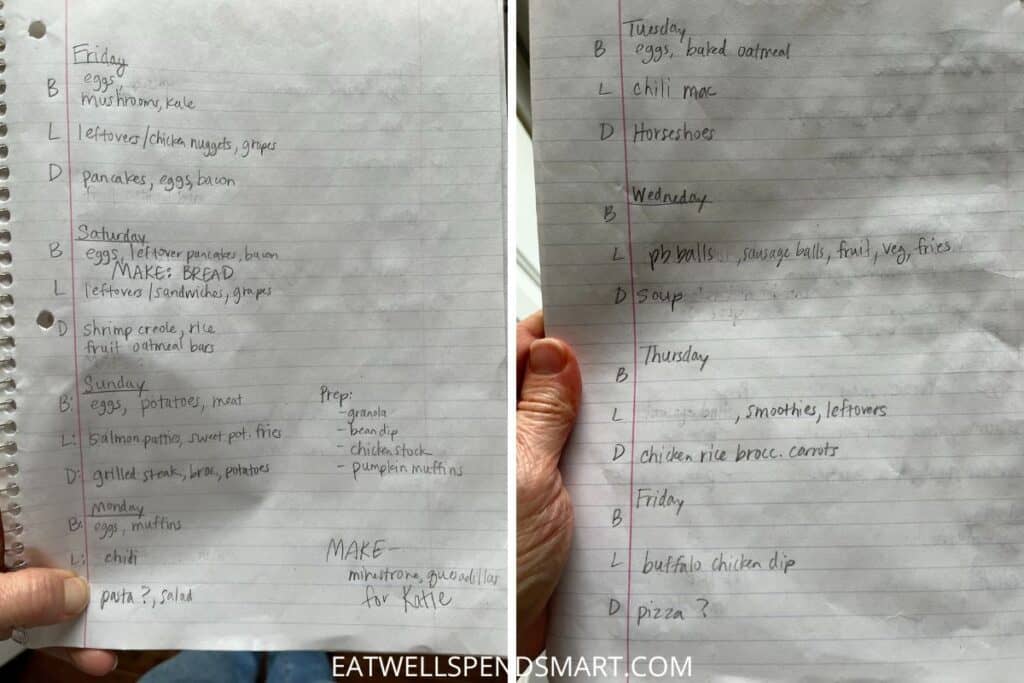 Friday
B eggs,
mushrooms, kale
L leftovers/chicken nuggets, grapes
D pancakes, eggs, bacon
Saturday
B eggs, leftover pancakes, bacon
MAKE: BREAD
L leftovers/sandwiches, grapes
D shrimp creole, rice
fruit oatmeal bars
Sunday
B: eggs, potatoes, meat
L: salmon patties, sweet pot. fries
D: grilled steak, broc, potatoes
Prep:
- granola
- bean dip
- chicken stock
- pumpkin muffins
Monday
B: eggs, muffins
L: chili
pasta ?, salad
MAKE-
minestrone, quesadillas
for Katie
Tuesday
B eggs, baked oatmeal
L chili mac
D Horseshoes
Wedneday
B
L pb balls, sausage balls, fruit, veg, fries
D soup
soup
Thursday
B
L , smoothies, leftovers
D chicken rice brocc. carrots
Friday
B
L buffalo chicken dip
D pizza ?
EATWELLSPENDSMART.COM